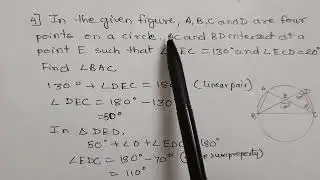 4] In the given figure, A,B,C and D are four
points on a circle. AC and BD intersect at a
point E such that ∠BEC = 130° and ∠ECD = 20°
Find ∠BAC
130° + ∠DEC = 180° (linear pair)
∠DEC = 180° - 130°
= 50°
In △DED,
50° + 20 + ∠EDC = 180
∠EDC = 180° - 70° sum property)
= 110°